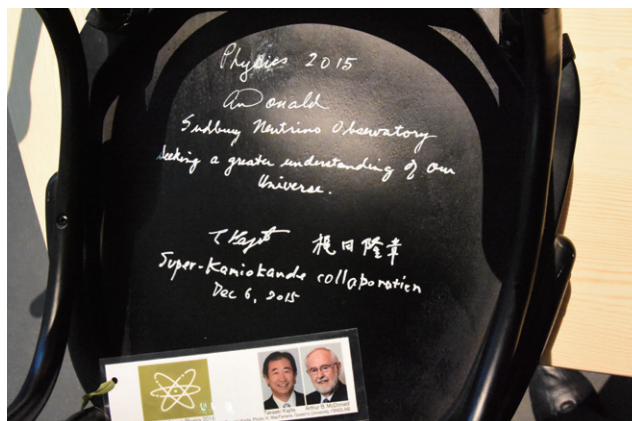 Physics 2015
ArMcDonald
Sudbury Neutrino Observatory
Seeking a greater understanding of our
Universe.
T Kajita 梶田隆章
Super-Kamiokande collaboration
Dec 6, 2015
Takaaki Kajita Arthur B. McDonald